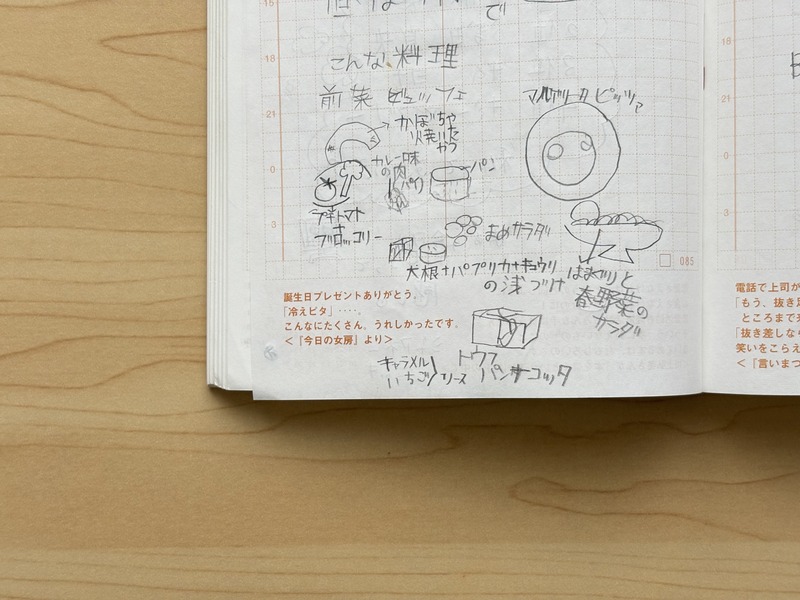 で
こんな料理
前菜ビュッフェ
マルゲリータピッツァ
かぼちゃ
焼いた
やつ
カレー味
の肉
パン
プチトマト
+
ブロッコリー
まめサラダ
大根+パプリカ+キョウリ
の浅づけ
はまぐりと
春野菜の
サラダ
トウフ
パンナコッタ
キャラメル
いちご
ソース
18
21
0
3
085
誕生日プレゼントありがとう。
「冷えピタ」‥‥。
こんなにたくさん。うれしかったです。
<『今日の女房』より>
21
3
電話で上司が
「もう、抜き足
ところまで
「抜き差しな
笑いをこらえ
<『言いまつ